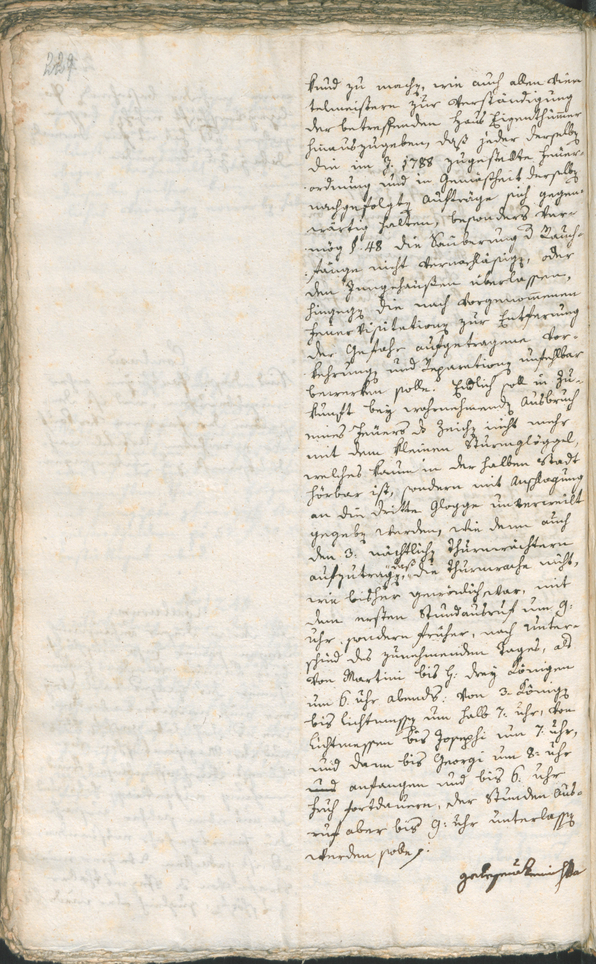 229
kund zu machen, wie auch allen Vier-
telmeistern zur Verständigung
der betreffenden Haus Eigenthümer
hinauszugeben, daß jeder derselben
die im J. 1788 zugestellte Feuer-
ordnung und in Gemäßheit derselben
nachgefolgten Aufträge sich gegen-
wärtig halten, besonders ver-
mög § 48 die Säuberung d Rauch-
fänge nicht vernachläßigen, oder
den überlassen,
hingegen die nach vorgenomenen
Feuer Visitationen zur Entfernung
der Gefahr aufgetragene Vor-
kehrungen und Reparationen unfehlbar
bewerken solle. Endlich soll in Zu-
kunft bey wahrnehmenden Ausbruch
eines Feuers das Zeichen nicht mehr
mit dem kleinen Sturmglöggel,
welches kaum in der halben Stadt
hörbar ist, sondern mit Anschlagung
an die dritte Glogge unverweilt
gegeben werden, wie dann auch
den 3. nächtlichen Thurmwächtern
aufzutragen, daß die Thurmwache nicht,
wie bisher gewöhnlich war, mit
dem ersten Stundausruf um 9.
Uhr, sondern früher, nach Unter-
schied des zunehmenden Tages, als
von Martini bis H. drey Königen
um 6. Uhr abends: von 3. Königen
bis Lichtmessen um halb 7. Uhr, von
Lichtmessen bis Josephi um 7. Uhr,
und dann bis Georgi um 8. Uhr
und anfangen und bis 6. Uhr
fruh fortdauern, der Stunden Aus-
ruf aber bis 9. Uhr unterlassen
werden solle.